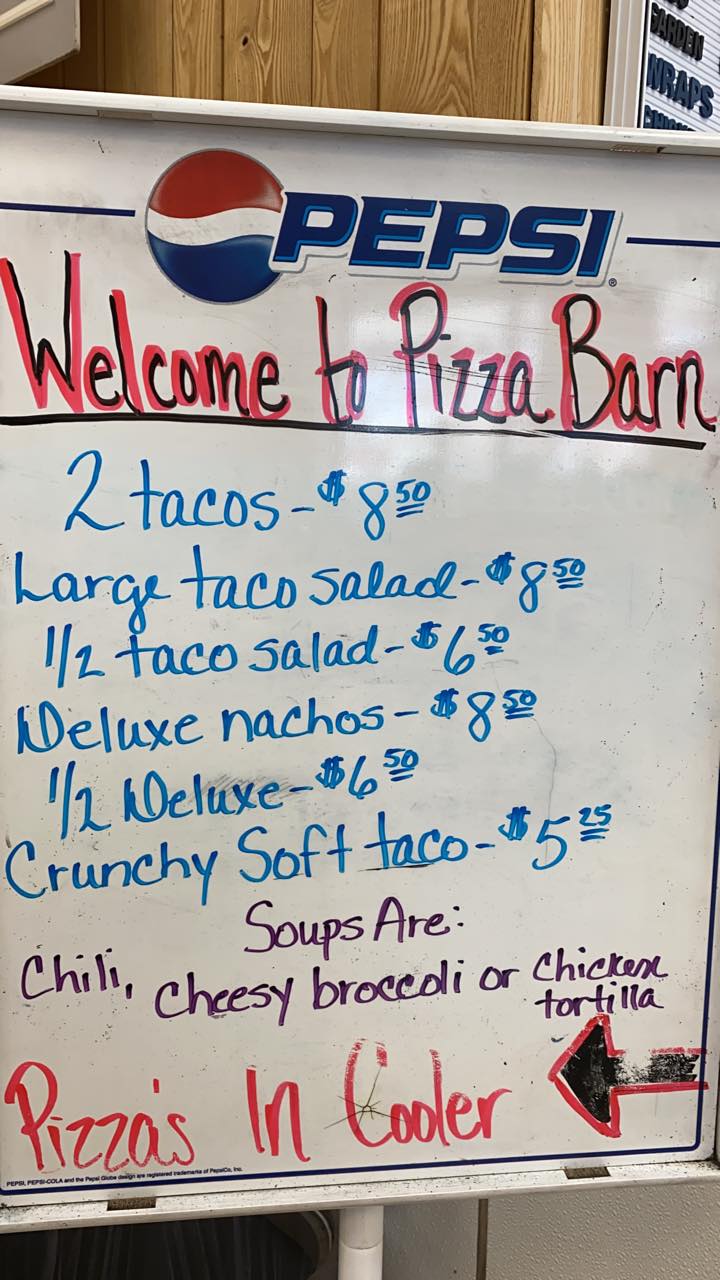 GARDEN
WRAPS
PEPSI®
Welcome to Pizza Barn
2 tacos - $8 50
Large taco salad - $8 50
1/2 taco salad - $6 50
Deluxe nachos - $8 50
1/2 Deluxe - $6 50
Crunchy Soft taco - $5 25
Soups Are:
Chili, Cheesy broccoli or Chicken
tortilla
Pizza's In Cooler
PEPSI, PEPSI-COLA and the Pepsi Globe design are registered trademarks of PepsiCo, Inc.